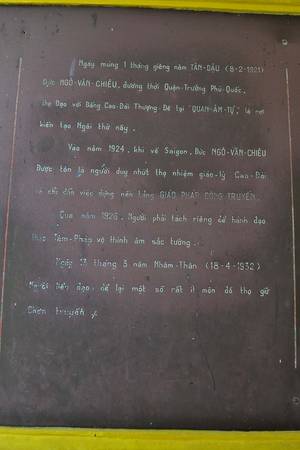 Ngày mùng 1 tháng giêng năm TÂN-DẬU (8-2-1921)
Đức NGÔ-VĂN-CHIÊU, đương thời Quận-Trưởng Phú-Quốc,
thọ Đạo với Đấng Cao-Đài Thượng-Đế tại "QUAN-ÂM-TỰ," là nơi
kiến tạo Ngài thờ nầy.
Vào năm 1924, khi về Saigon, Đức NGÔ-VĂN-CHIÊU
Được tôn là người duy nhứt thọ nhiệm giáo-lý Cao-Đài
và chỉ dẫn việc dựng nên tảng GIÁO PHÁP CÔNG TRUYỀN.
Qua năm 1926, Người phải tách riêng để hành đạo
theo Tâm-Pháp vô thinh âm sắc tướng.
Ngày 13 tháng 3 năm Nhâm-Thân (18-4-1932)
Người liễu đạo, để lại một số rất ít môn đồ thọ giữ
Chơn truyền